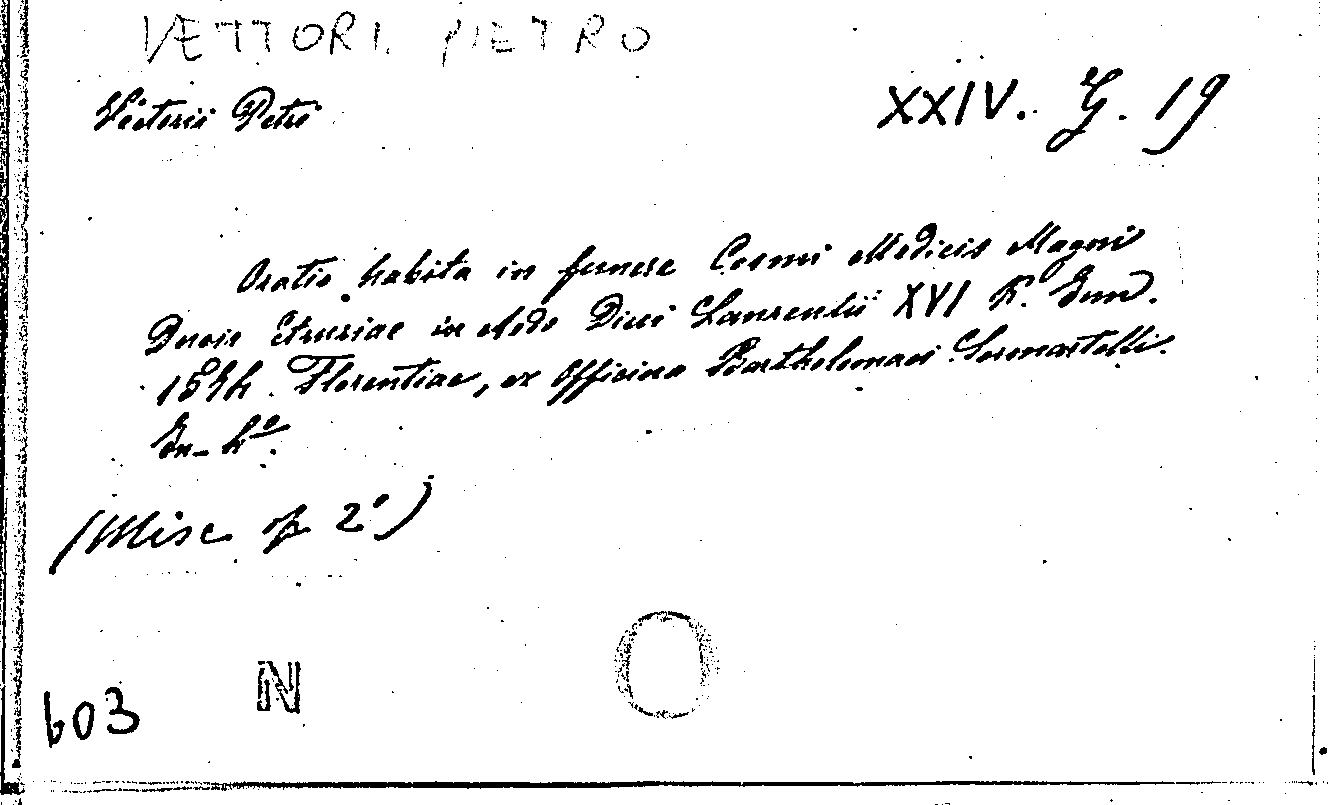 VETTORI PIETRO
Victorii Petri
XXIV. G. 19
Oratio habita in funere Cosmi Medicis Magni
Ducis Etruriae in Aede Divi Laurentii XVI K. Iun.
1574. Florentiae, ex Officina Bartholomaei Sermartelli.
In-4º.
(Misc op 2º)
603
N